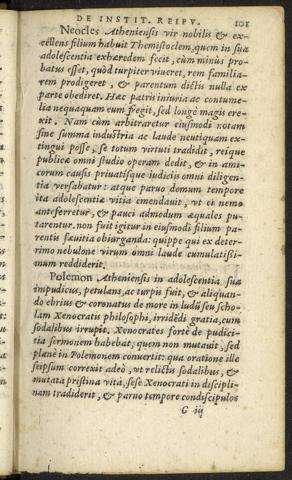 DE INSTIT. REIPV. 101
Neocles Atheniensis vir nobilis & ex-
cellens filium habuit Themistoclem, quem in sua
adolescentia exhæredem fecit, cùm minùs pro-
batus esset, quòd turpiter viueret, rem familia-
rem prodigeret, & parentum dictis nulla ex
parte obediret. Hac patris iniuria ac contume-
lia nequaquam eum fregit, sed longè magis ere-
xit. Nam cùm arbitraretur eiusmodi notam
sine summa industria ac laude neutiquam ex-
tingui posse, se totum virtuti tradidit, reique
publicæ omni studio operam dedit, & in ami-
corum causis priuatisque iudiciis omni diligen-
tia versabatur: atque paruo demum tempore
ita adolescentiæ vitia emendauit, vt ei nemo
anteferretur, & pauci admodum æquales pu-
tarentur. non fuit igitur in eiusmodi filium pa-
rentis sæuitia obiurganda: quippe qui ex deter-
rimo nebulone virum omni laude cumulatissi-
mum reddiderit.
Polemon Atheniensis in adolescentia sua
impudicus, petulans, ac turpis fuit, & aliquan-
do ebrius & coronatus de more in ludũ seu scho-
lam Xenocratis philosophi, irridẽdi gratia, cum
sodalibus irrupit. Xenocrates fortè de pudici-
tia sermonem habebat, quem non mutauit, sed
planè in Polemonem conuertit: qua oratione ille
seipsum correxit adeò, vt relictis sodalibus, &
mutata pristina vita, sese Xenocrati in discipli-
nam tradiderit, & paruo tempore condiscipulos
G iij